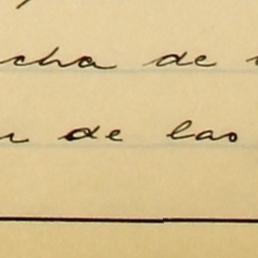 cha de
de las